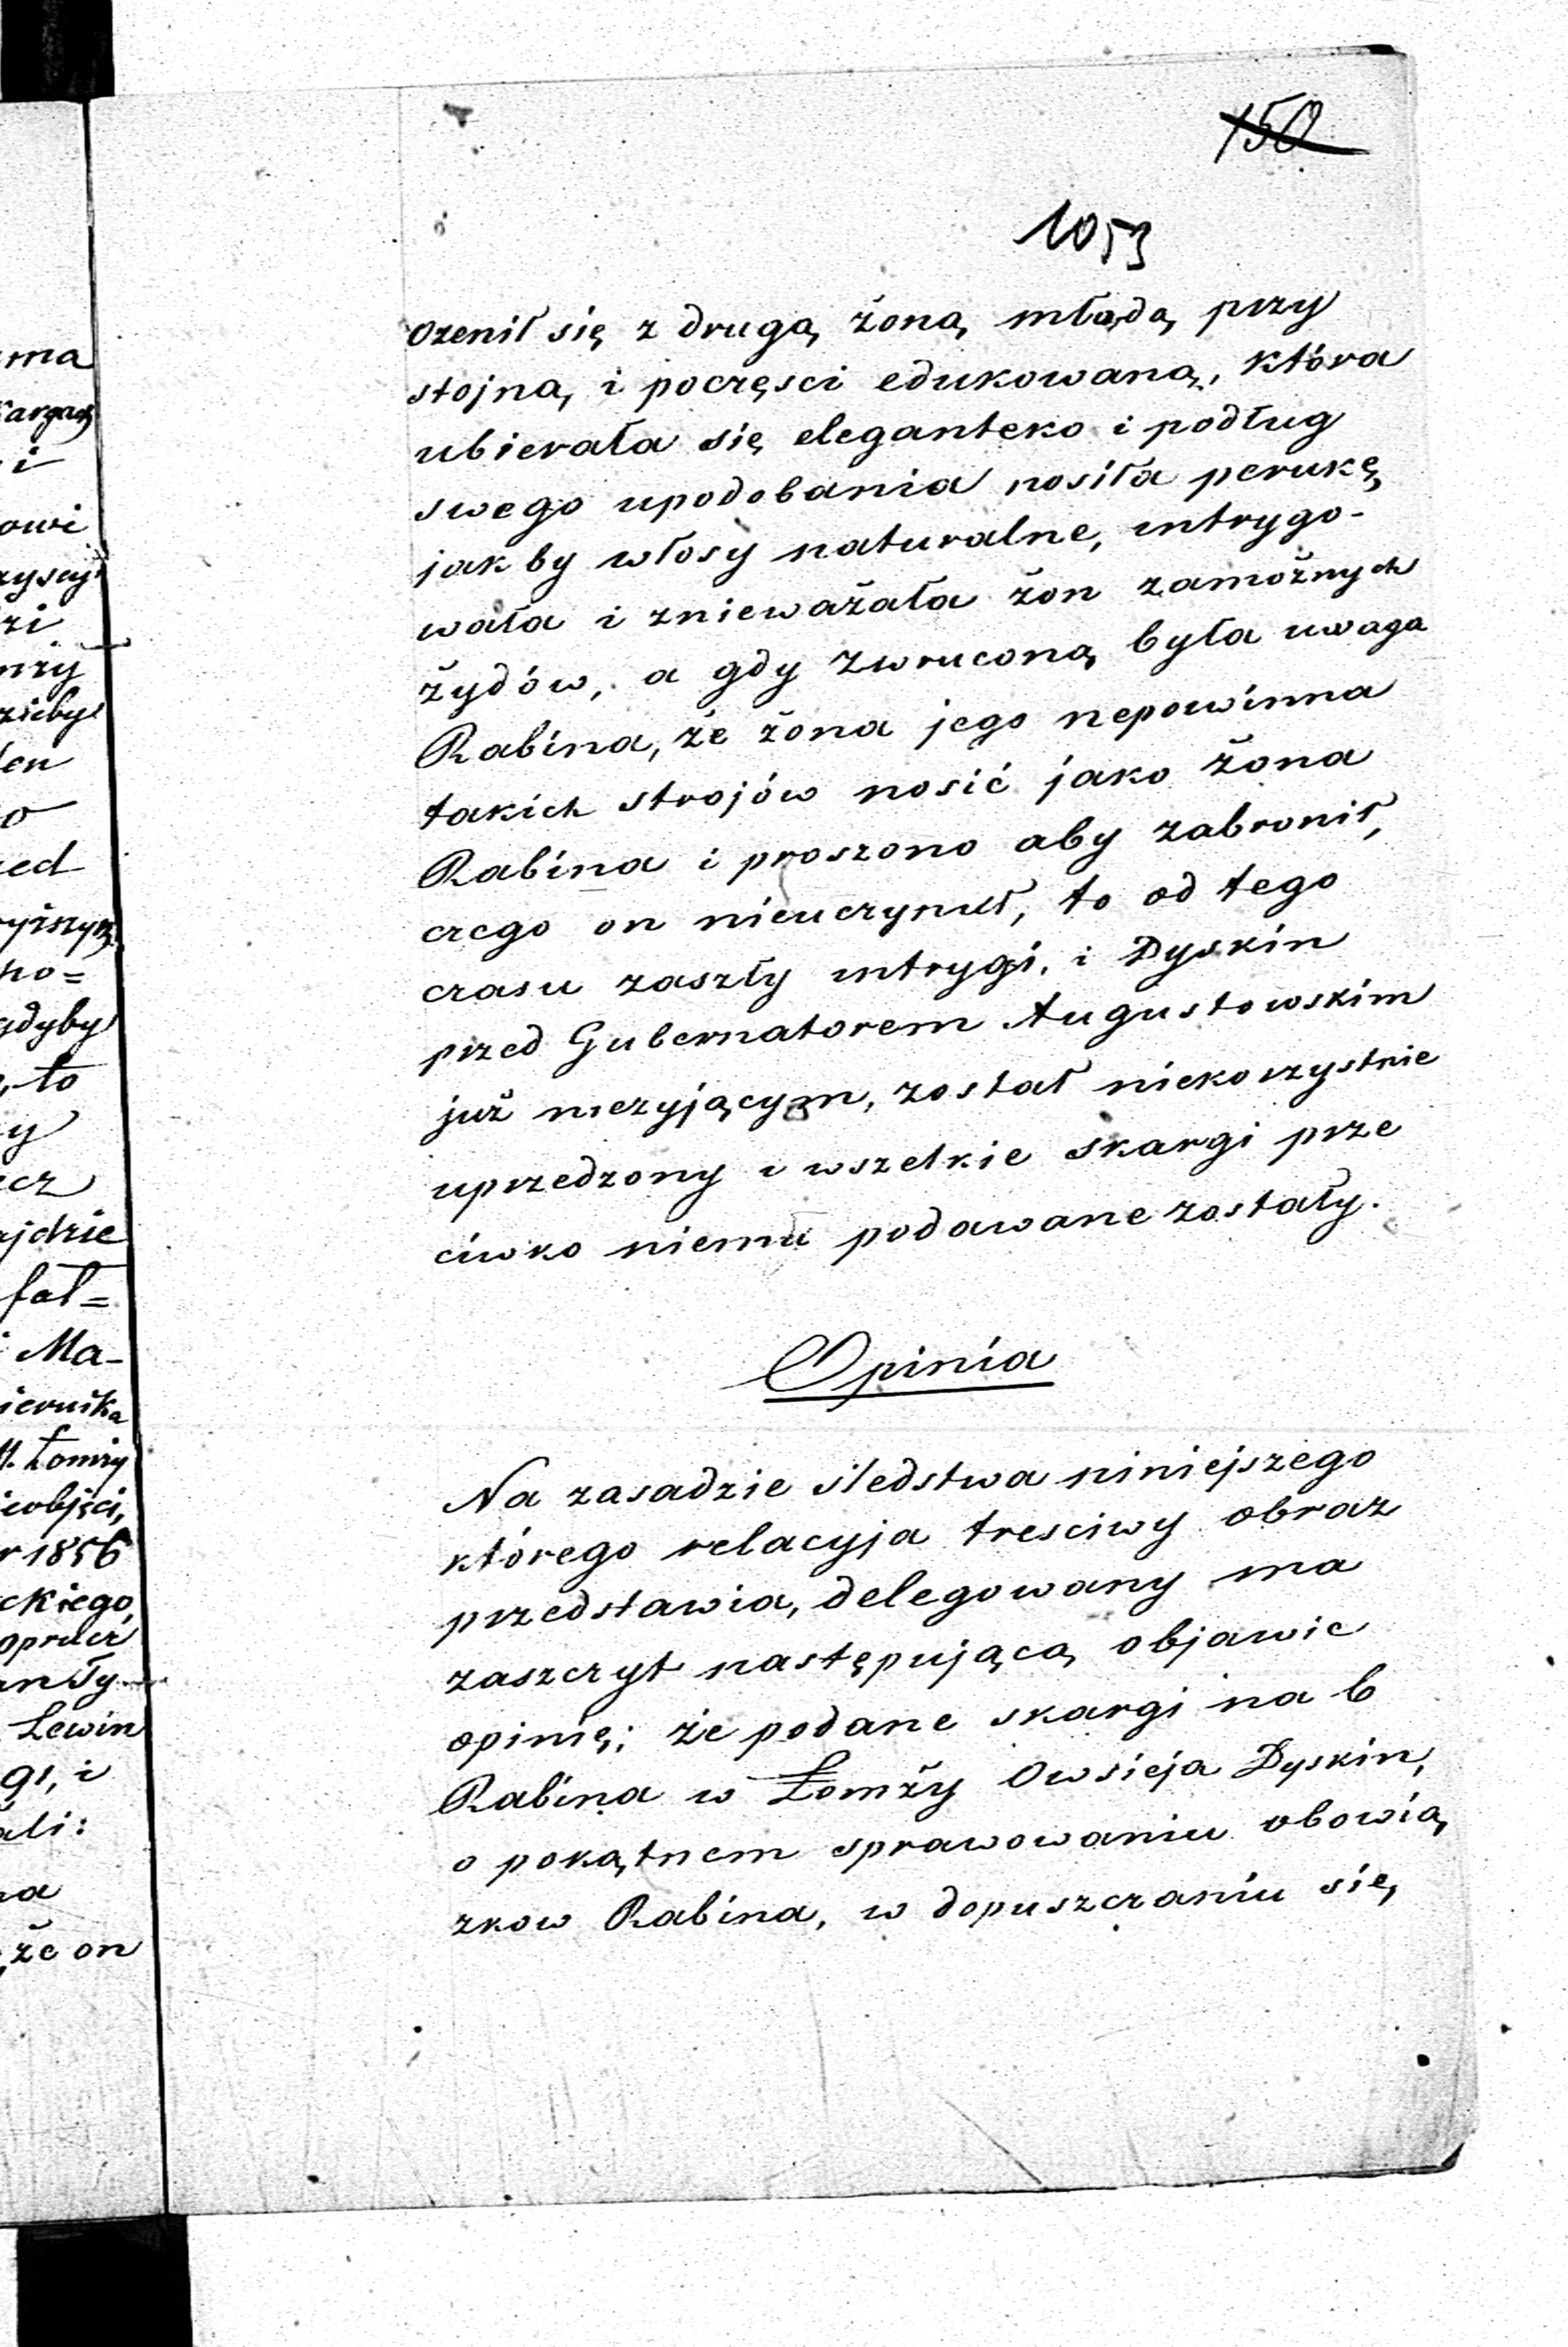 150
1053
ozenił się z drugą żoną młodą przy
stojną i poczęsci edukowaną, która
ubierała się eleganteko i podług
swego upodobania nosiła perukę,
jak by włosy naturalne, intrygo-
wała i znieważała żon zamożnych
żydów, a gdy zwruconą była uwaga
Rabina, że żona jego nepowinna
takich strojów nosić jako żona
Rabina i proszono aby zabronił,
czego on nieuczynił, to od tego
czasu zaszły intrygi, i Dyskin
przed Gubernatorem Augustowskim
już nieżyjącym, został niekorzystnie
uprzedzony i wszelkie skargi prze
ciwko niemu podawane zostały.
Opinia
Na zasadzie śledstwa niniejszego
którego relacyja tresciwy obraz
przedstawia, delegowany ma
zaszczyt następującą objawic
opinię; że podane skargi na b
Rabina w Łomży Owsieja Dyskin,
o pokątnem sprawowaniu obowią
zkow Rabina, w dopuszczaniu się
ma
i
owi
zi
en
o
ed
no=
gdyby
to
y
cz
jdzie
fał=
Ma-
iernika
Łomży
r 1856
ckiego,
Lewin
gi, i
ali:
a
że on